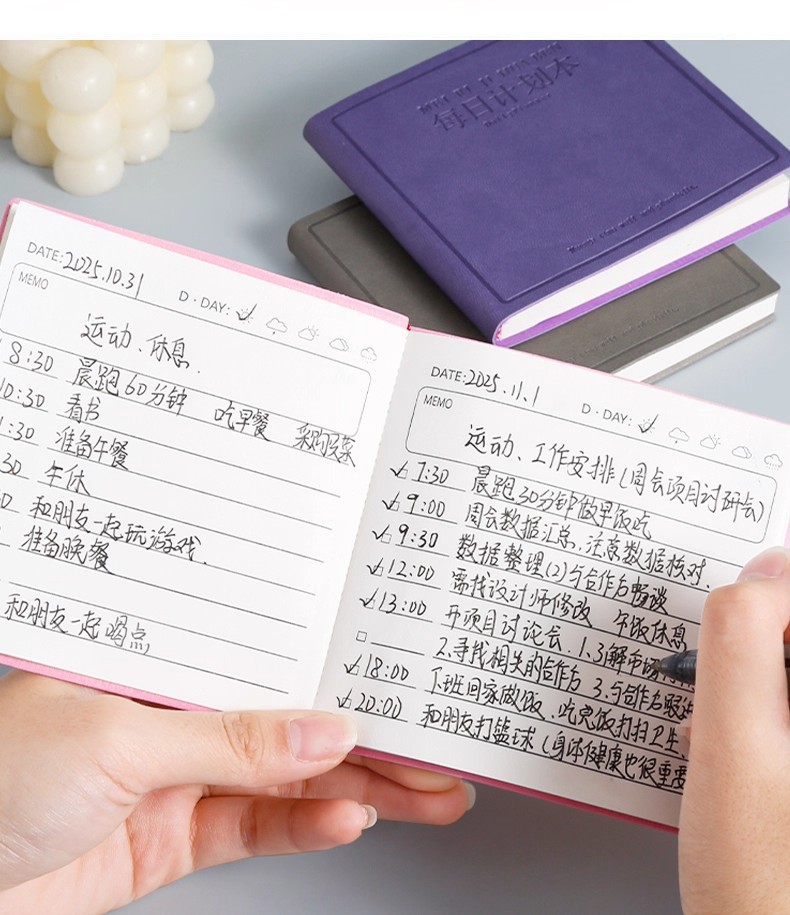 每日计划本
DATE: 2025.10.31
D · DAY:
MEMO
运动、休息.
8:30 晨跑60分钟 吃早餐 采购买菜
10:30 看书
:30 准备午餐
:30 午休
和朋友一起玩游戏.
准备晚餐
和朋友一起喝点
DATE: 2025.11.1
D · DAY:
MEMO
运动、工作安排(周会项目讨研会)
7:30 晨跑30分钟做早饭吃
9:00 周会数据汇总,注意数据核对.
9:30 数据整理(2)与合作方畅谈
12:00 需找设计师修改 午饭休息
13:00 开项目讨论会.1.3解市场
2.寻找相关的合作方 3.与合作
18:00 下班回家做饭.吃完饭打扫卫生、
20:00 和朋友打篮球(身体健康也很重要